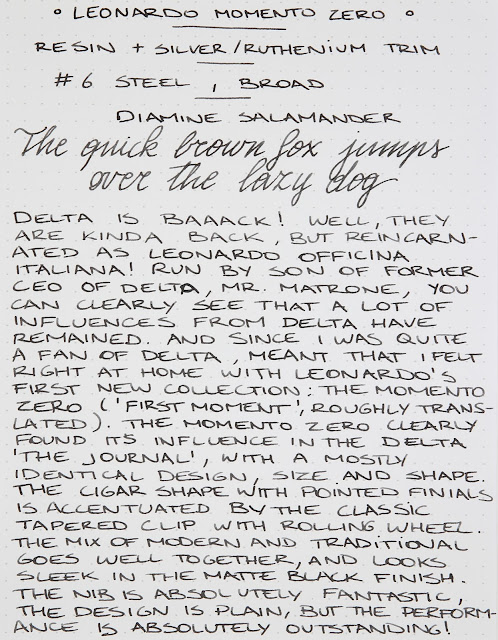 ° LEONARDO MOMENTO ZERO °
RESIN + SILVER/RUTHENIUM TRIM
#6 STEEL, BROAD
DIAMINE SALAMANDER
The quick brown fox jumps
over the lazy dog
DELTA IS BAAACK! WELL, THEY
ARE KINDA BACK, BUT REINCARN-
ATED AS LEONARDO OFFICINA
ITALIANA! RUN BY SON OF FORMER
CEO OF DELTA, MR. MATRONE, YOU
CAN CLEARLY SEE THAT A LOT OF
INFLUENCES FROM DELTA HAVE
REMAINED. AND SINCE I WAS QUITE
A FAN OF DELTA, MEANT THAT I FELT
RIGHT AT HOME WITH LEONARDO'S
FIRST NEW COLLECTION: THE MOMENTO
ZERO ('FIRST MOMENT', ROUGHLY TRANS-
LATED). THE MOMENTO ZERO CLEARLY
FOUND ITS INFLUENCE IN THE DELTA
'THE JOURNAL', WITH A MOSTLY
IDENTICAL DESIGN, SIZE AND SHAPE.
THE CIGAR SHAPE WITH POINTED FINIALS
IS ACCENTUATED BY THE CLASSIC
TAPERED CLIP WITH ROLLING WHEEL.
THE MIX OF MODERN AND TRADITIONAL
GOES WELL TOGETHER, AND LOOKS
SLEEK IN THE MATTE BLACK FINISH.
THE NIB IS ABSOLUTELY FANTASTIC,
THE DESIGN IS PLAIN, BUT THE PERFORM-
ANCE IS ABSOLUTELY OUTSTANDING!